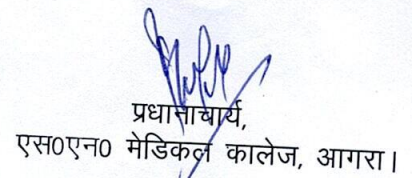 प्रधानाचार्य,
एस0एन0 मेडिकल कालेज, आगरा।